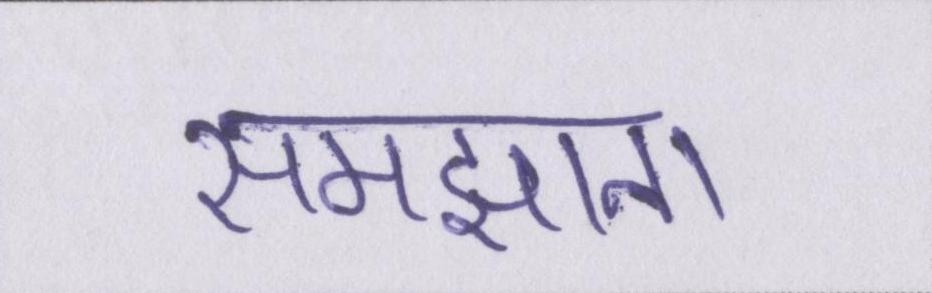 समझाना